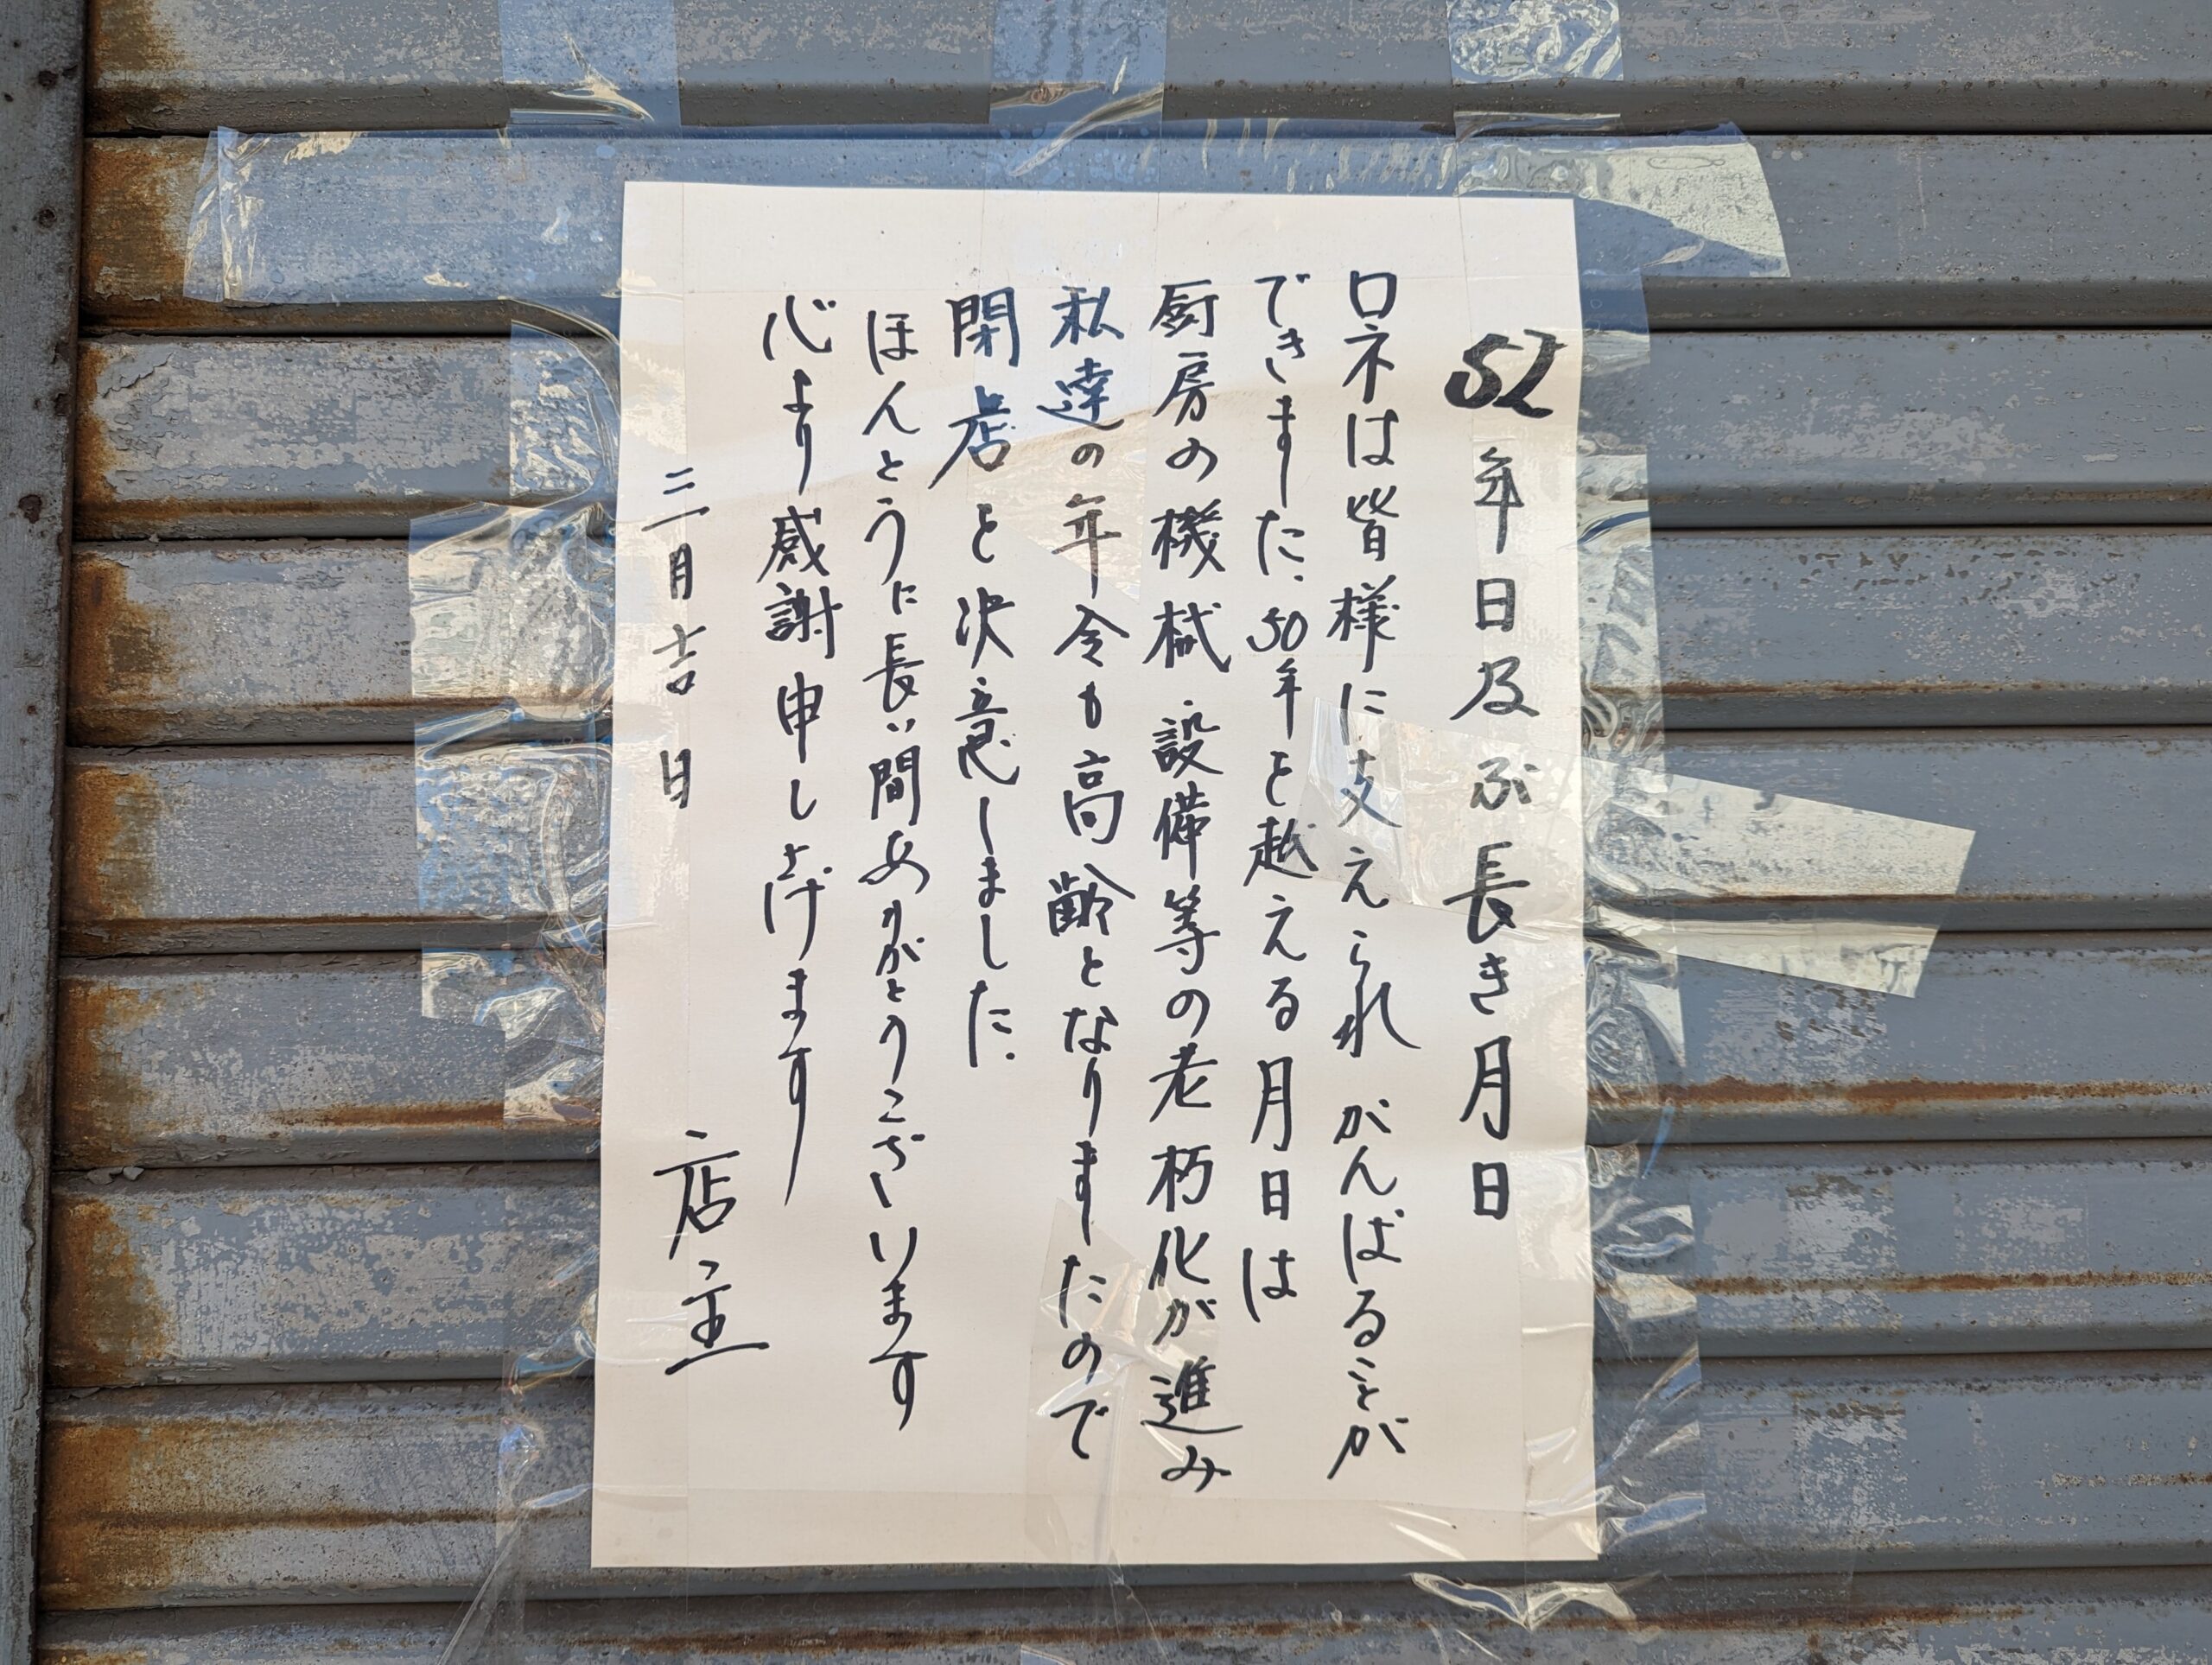 52年日及ぶ長き月日
ロネは皆様に支えられがんばることが
できました。50年を越える月日は
厨房の機械設備等の老朽化が進み
私達の年令も高齢となりましたので
閉店を決意しました。
ほんとうに長い間ありがとうございます
心より感謝申し上げます
三月吉日 店主